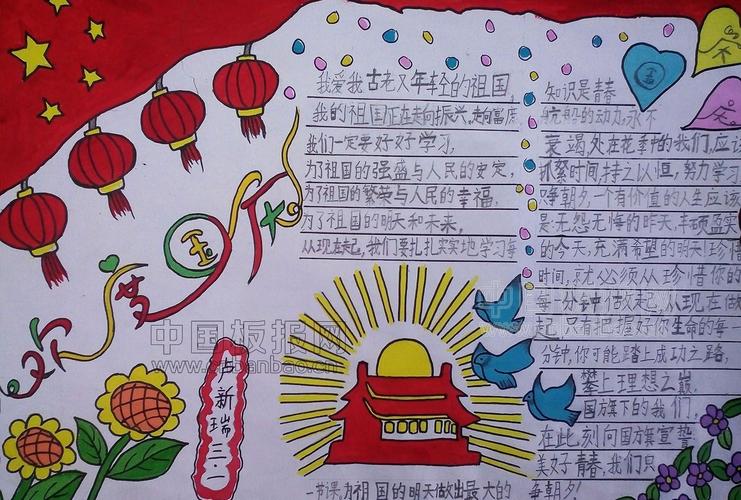 欢度国庆
我爱我古老又年轻的祖国,
我的祖国正在走向振兴,走向富庶
我们一定要好好学习,
为了祖国的强盛与人民的安定,
为了祖国的繁荣与人民的幸福,
为了祖国的明天和未来,
从现在起,我们要扎扎实实地学习每
一节课,为祖国的明天做出最大的
知识是青春
航船的动力,永不
衰竭处在花季中的我们,应该
抓紧时间,持之以恒,努力学习
争朝夕,一个有价值的人生应该
是:无怨无悔的昨天,丰硕盈实
的今天,充满希望的明天!珍惜
时间,就必须从珍惜你的
每一分钟做起,从现在做
起,只有把握好你生命的每一
分钟,你可能踏上成功之路,
攀上理想之巅
国旗下的我们,
在此刻向国旗宣誓
美好青春,我们只
争朝夕!
国
庆
卢新瑞三.二
中国板报网